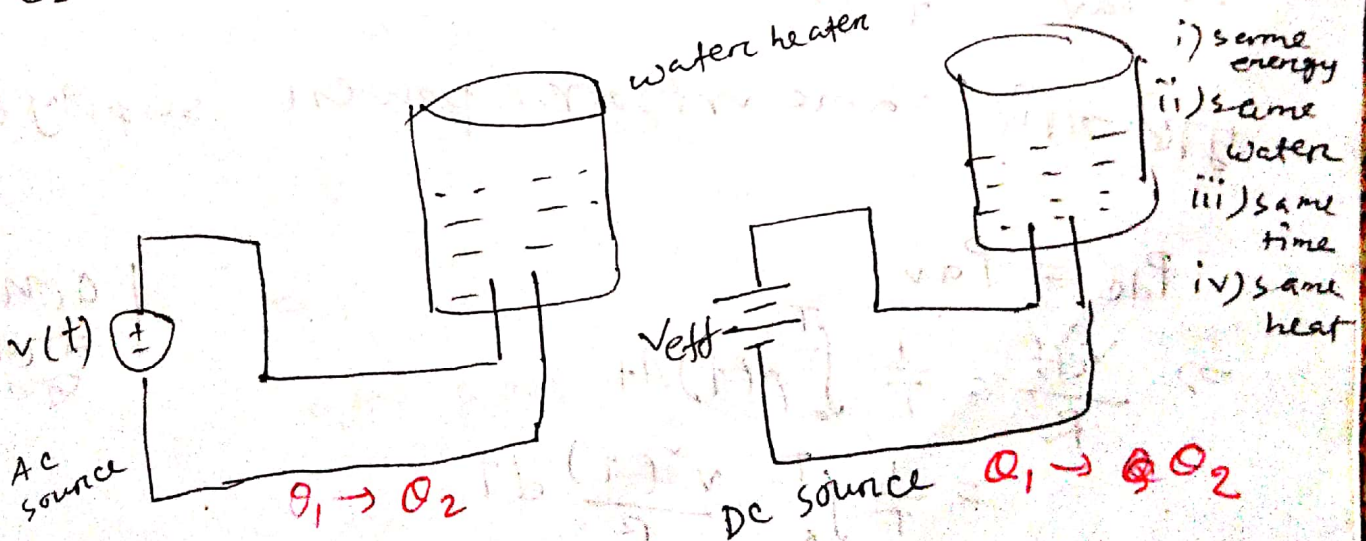 water heater
i) same
energy
ii) same
water
iii) same
time
iv) same
heat
v(t)
+
-
Veff
AC
source
θ₁ → θ₂
DC source
θ₁ → θ₂